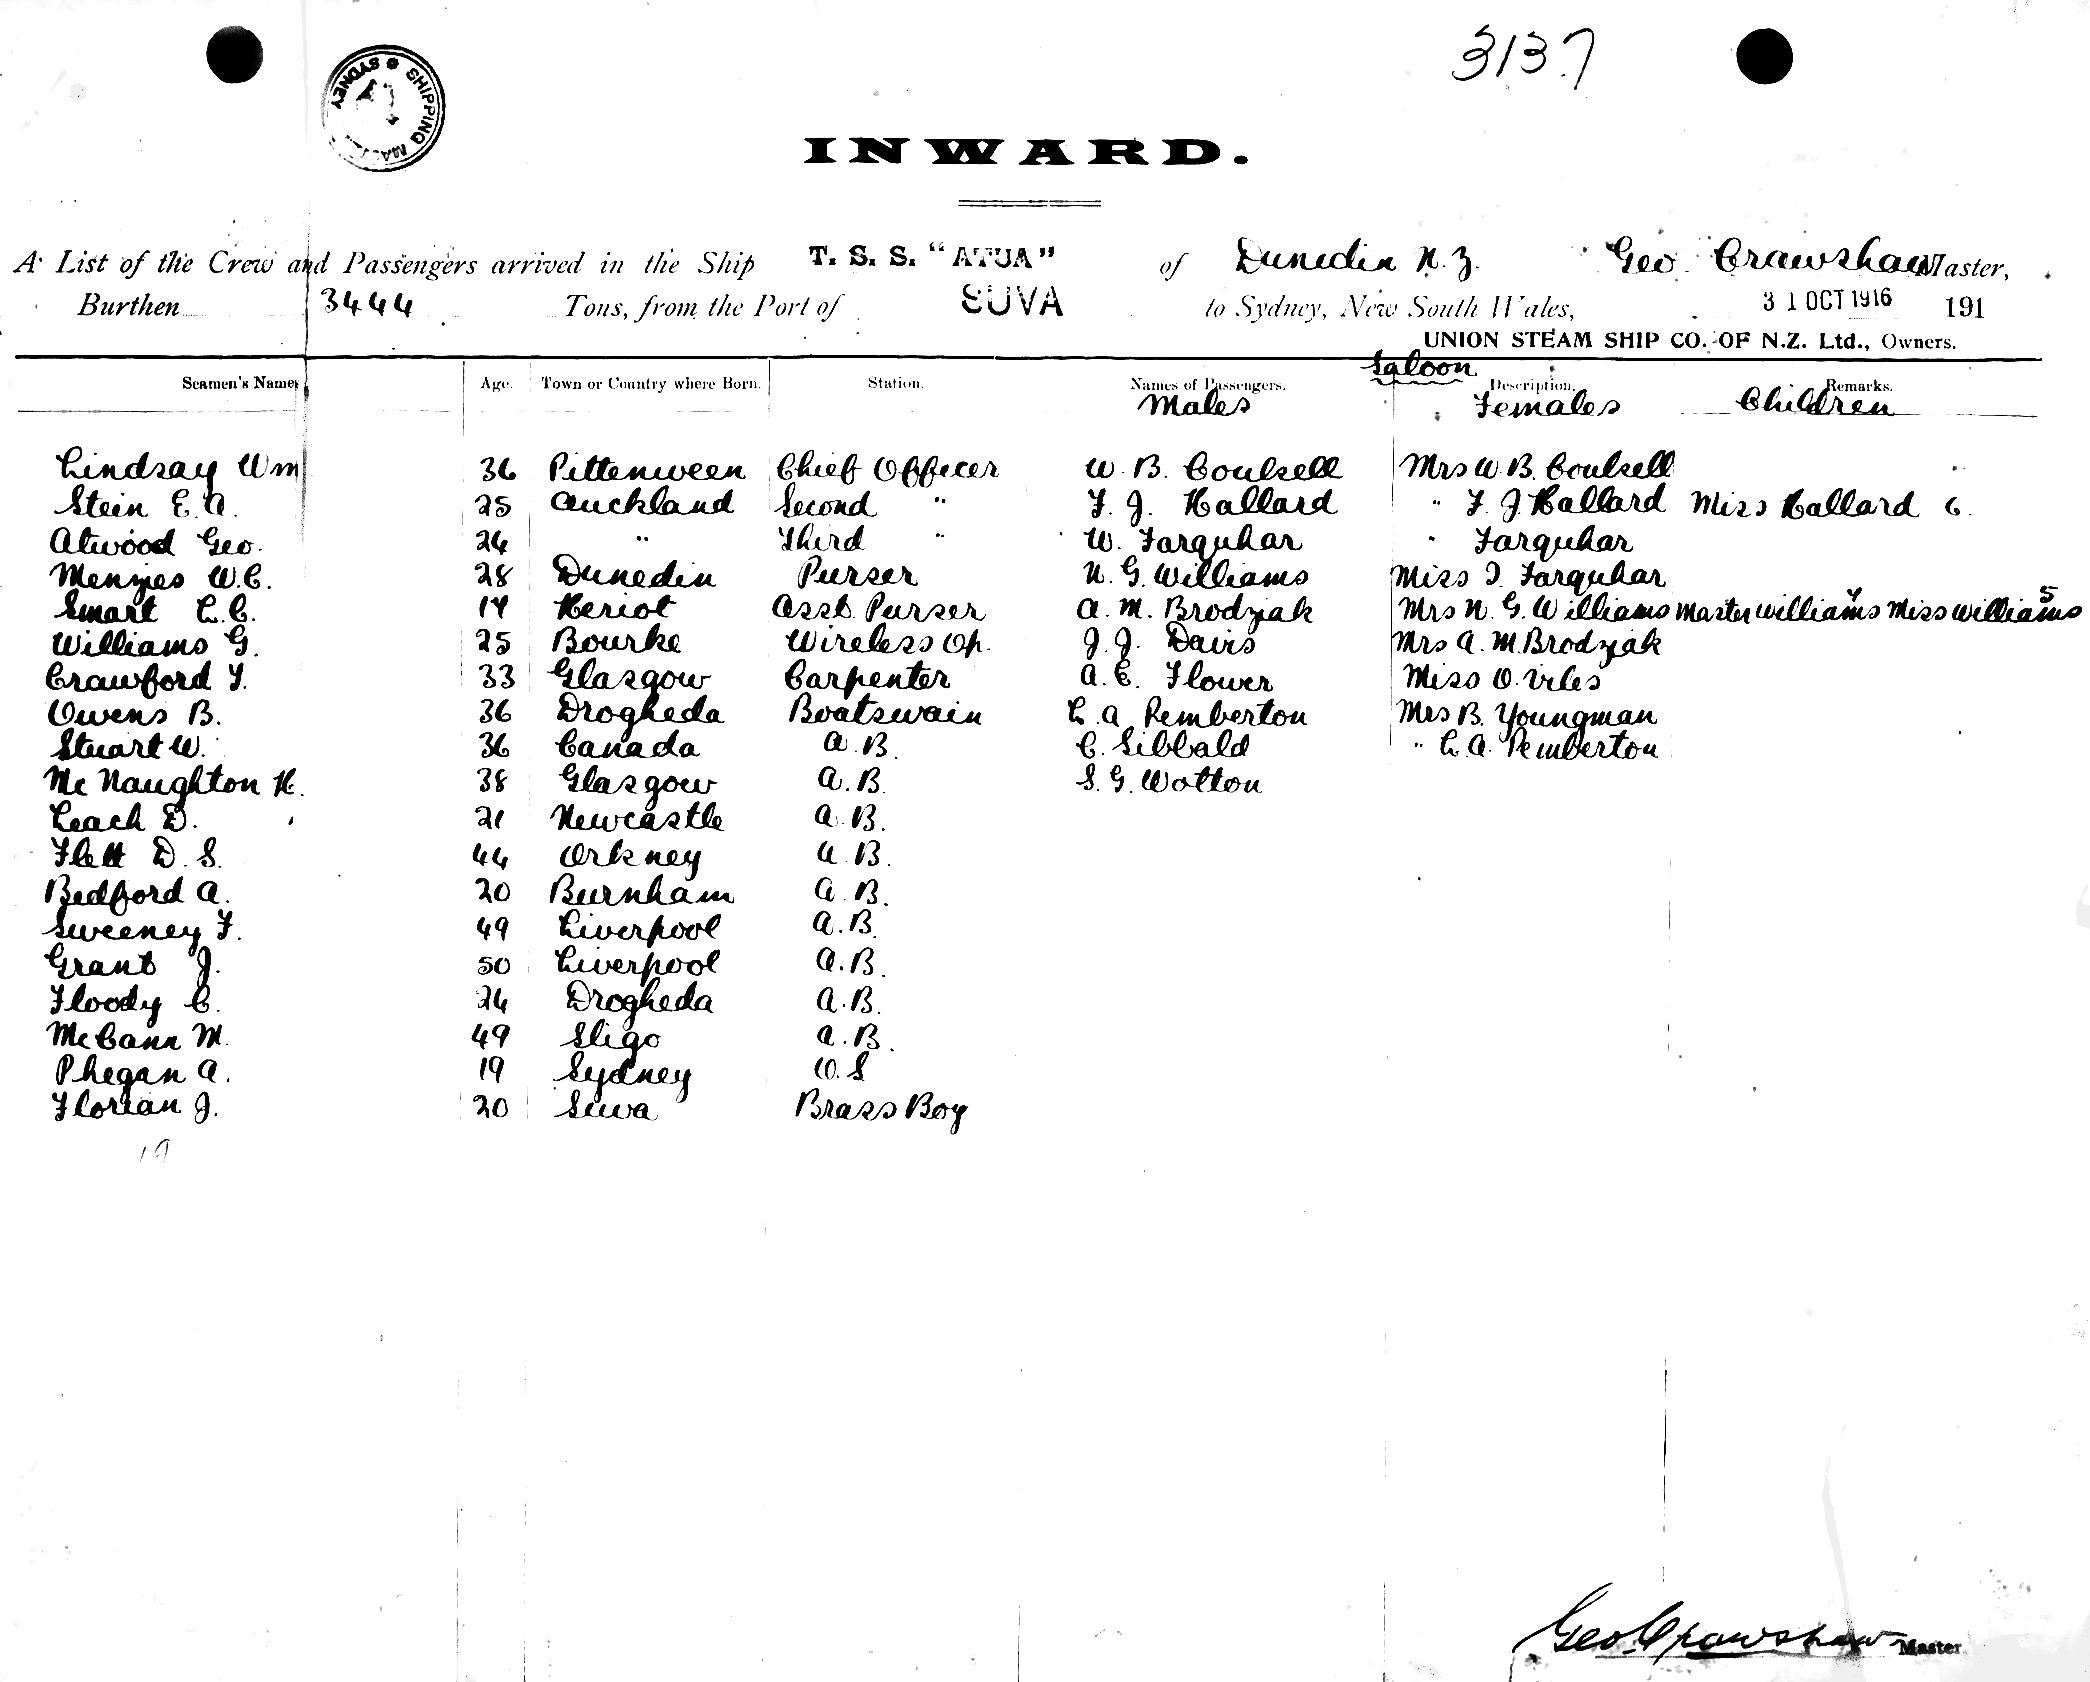 3137
SHIPPING MASTER SYDNEY
INWARD.
A List of the Crew and Passengers arrived in the Ship T. S. S. "ATUA" of Dunedin N. Z. Geo Crawshaw Master,
Burthen 3444 Tons, from the Port of SUVA to Sydney, New South Wales, 31 OCT 1916 191
UNION STEAM SHIP CO. OF N.Z. Ltd., Owners.
Saloon
Seamen's Names Age. Town or Country where Born. Station. Names of Passengers. Description. Remarks.
Males Females Children
Lindsay Wm 36 Pittenween Chief Officer W. B. Coulsell Mrs W. B. Coulsell
Stein E. A. 25 Auckland Second " F. J. Hallard " F. J Hallard Miss Hallard 6.
Atwood Geo. 24 " Third " W. Farquhar " Farquhar
Menzies W. C. 28 Dunedin Purser N. G. Williams Miss I. Farquhar
Smart L. C. 17 Heriot Asst. Purser A. M. Brodziak Mrs N. G. Williams Master Williams 7 Miss Williams 5
Williams G. 25 Bourke Wireless Op. J. J. Davis Mrs A. M. Brodziak
Crawford T. 33 Glasgow Carpenter A. E. Flower Miss O. Viles
Owens B. 36 Drogheda Boatswain L. A Pemberton Mrs B. Youngman
Stuart W. 36 Canada A. B. C. Sibbald " L. A. Pemberton
McNaughton H. 38 Glasgow A. B. S. G. Wotton
Leach D. 21 Newcastle A. B.
Flett D. S. 44 Orkney A. B.
Bedford A. 20 Burnham A. B.
Sweeney F. 49 Liverpool A. B.
Grant J. 50 Liverpool A. B.
Floody C. 24 Drogheda A. B.
McCann M. 49 Sligo A. B.
Phegan A. 19 Sydney O. S
Florian J. 20 Suva Brass Boy
19
Geo Crawshaw Master